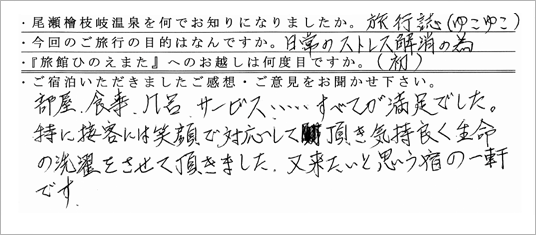 ・尾瀬檜枝岐温泉を何でお知りになりましたか。旅行誌(ゆこゆこ)
・今回のご旅行の目的はなんですか。日常のストレス解消の為
・『旅館ひのえまた』へのお越しは何度目ですか。(初)
・ご宿泊いただきましたご感想・ご意見をお聞かせ下さい。
部屋、食事、風呂、サービス……すべてが満足でした。
特に接客には笑顔で対応して頂き気持良く生命
の洗濯をさせて頂きました。又来たいと思う宿の一軒
です。